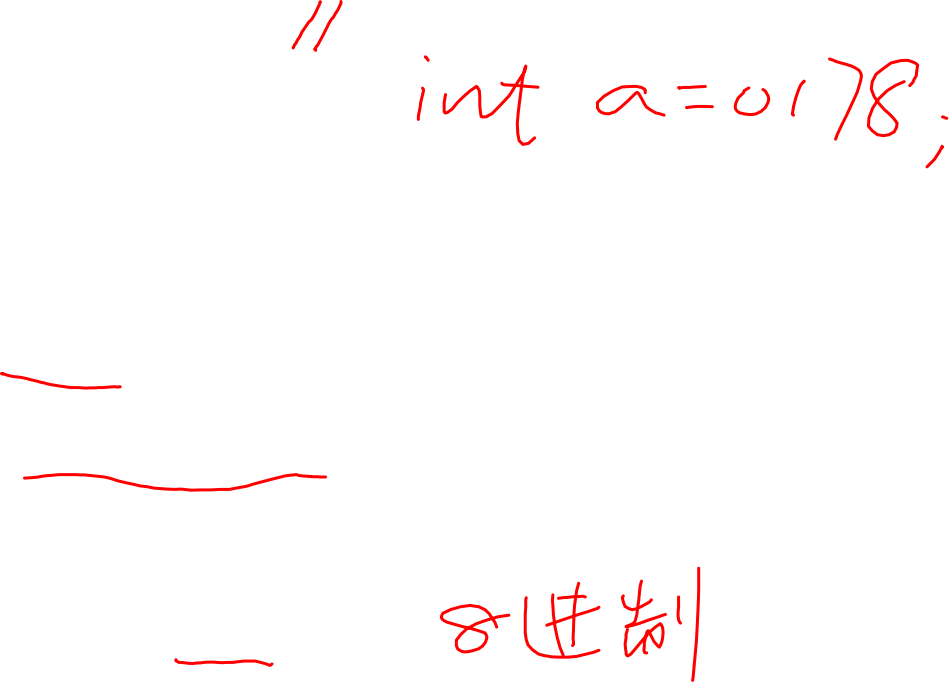 //
int a=0178;
8进制